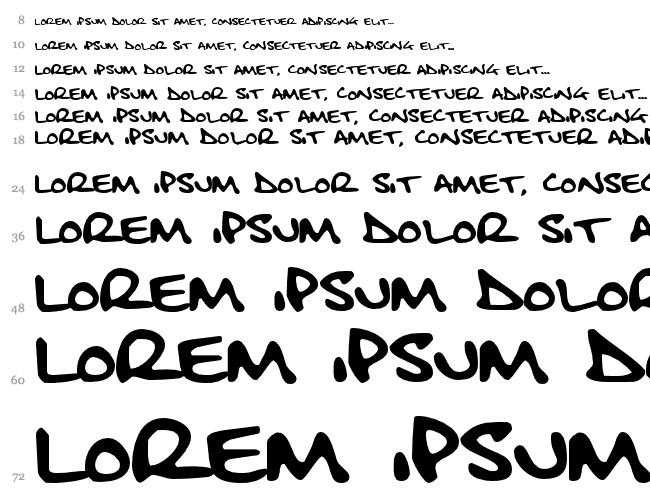 8 LOREM iPSUM DOLOR SiT AMET, CONSECTETUER ADiPiSCiNG ELiT...
10 LOREM iPSUM DOLOR SiT AMET, CONSECTETUER ADiPiSCiNG ELiT...
12 LOREM iPSUM DOLOR SiT AMET, CONSECTETUER ADiPiSCiNG ELiT...
14 LOREM iPSUM DOLOR SiT AMET, CONSECTETUER ADiPiSCiNG ELiT...
16 LOREM iPSUM DOLOR SiT AMET, CONSECTETUER ADiPiSCiNG
18 LOREM iPSUM DOLOR SiT AMET, CONSECTETUER ADiP
24 LOREM iPSUM DOLOR SiT AMET, CONSEC
36 LOREM iPSUM DOLOR SiT A
48 LOREM iPSUM DOLOR
60 LOREM iPSUM D
72 LOREM iPSUM